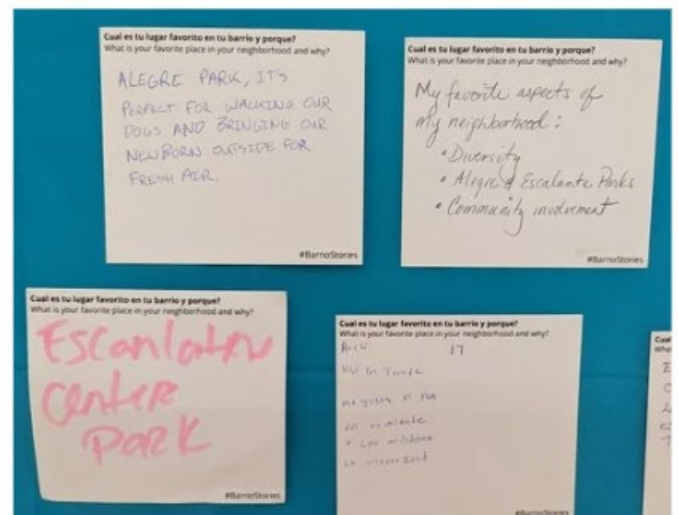 Cual es tu lugar favorito en tu barrio y porque?
What is your favorite place in your neighborhood and why?
ALEGRE PARK, IT'S
PERFECT FOR WALKING OUR
DOGS AND BRINGING OUR
NEWBORN OUTSIDE FOR
FRESH AIR.
#BarrioStories
Cual es tu lugar favorito en tu barrio y porque?
What is your favorite place in your neighborhood and why?
My favorite aspects of
my neighborhood:
• Diversity
• Alegre & Escalante Parks
• Community involvement
#BarrioStories
Cual es tu lugar favorito en tu barrio y porque?
What is your favorite place in your neighborhood and why?
Center
Park
#BarrioStories
Cual es tu lugar favorito en tu barrio y porque?
What is your favorite place in your neighborhood and why?
17
en Tempe
me gusta
#BarrioStories